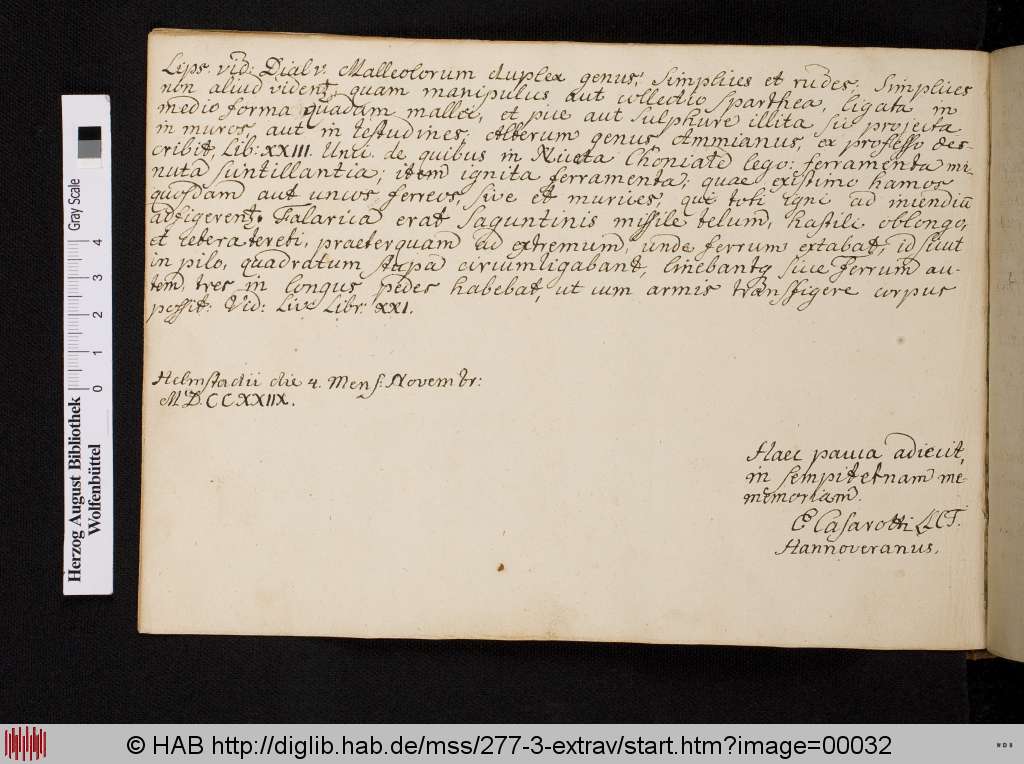 Lips. vid: Dial v. Malleolorum duplex genus, Simplices et rudes, Simplices
non aliud vident, quam manipulus aut collectio sparthea, ligata in
medio forma quadam mallei, et pice aut sulphure illita sic projecta
in muros, aut in testudines; Alterum genus Ammianus, ex professo des-
cribit, Lib: XXIII. Unci. de quibus in Niceta Choniate lego: ferramenta mi-
nuta scintillantia; item ignita ferramenta; quae existimo hamos
quosdam aut uncos ferreos, sive et murices, qui toti igni ad incendiū
adfigerent. Falarica erat Saguntinis missile telum, hastili oblongo,
et cetera tereti, praeterquam ad extremum, unde ferrum extabat, id sicut
in pilo, quadratum stupa circumligabant, linebantq sive Ferrum au-
tem tres in longus pedes habebat, ut cum armis transfigere corpus
possit: Vid: Liv Libr: XXI.
Helmstadii die 4. Mens. Novembr:
MDCCXXIIX.
Haec pauca adiecit,
in sempiternam me
memoriam.
C Casarotti
Hannoveranus.
Herzog August Bibliothek
Wolfenbüttel
Gray Scale
0 1 2 3 4
© HAB http://diglib.hab.de/mss/277-3-extrav/start.htm?image=00032
WDB